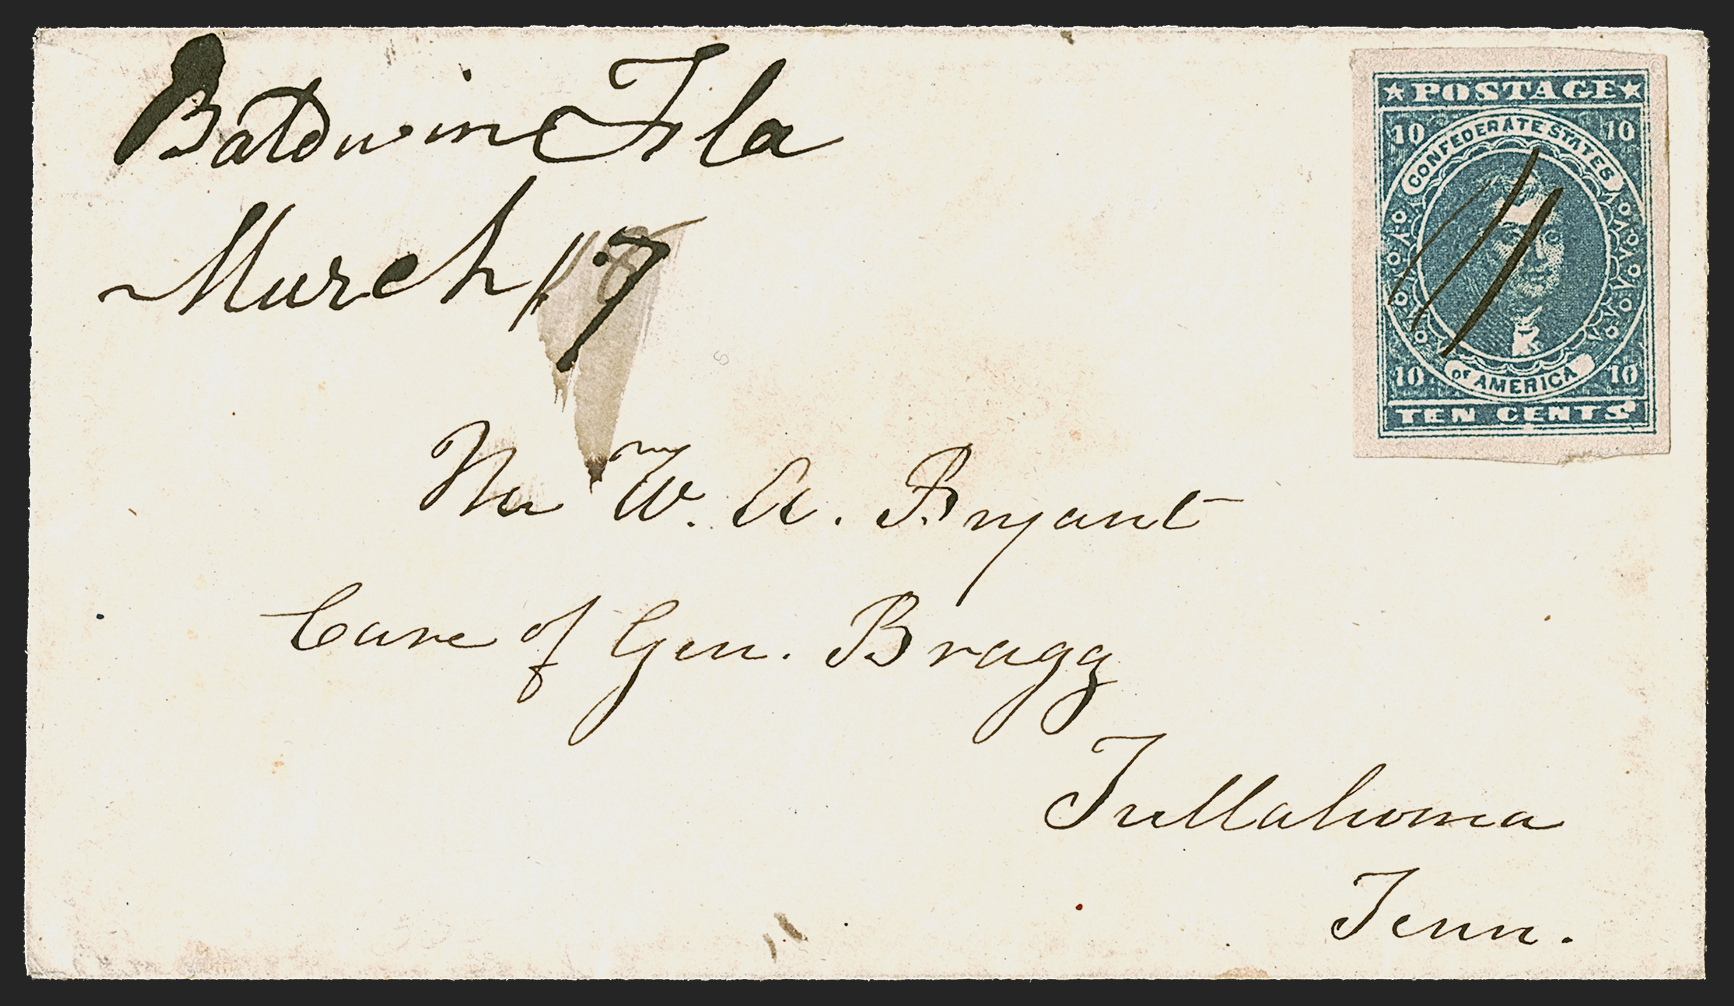 Baldwin Fla
March 17
Mr W. A. Bryant
Care of Gen. Bragg
Tullahoma
Tenn.
POSTAGE
10 10
CONFEDERATE STATES
OF AMERICA
10 10
TEN CENTS